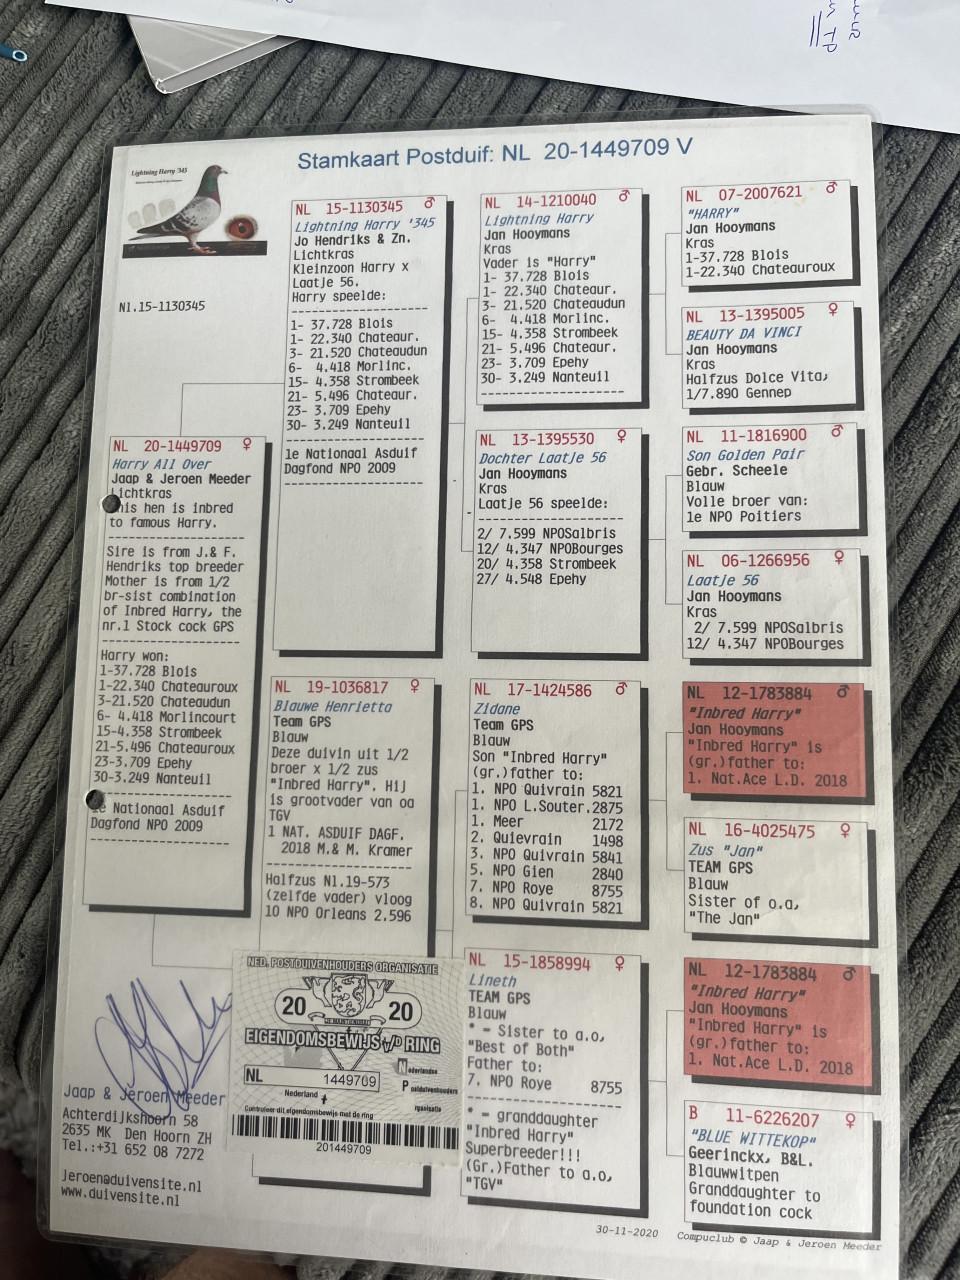 Stamkaart Postduif: NL 20-1449709 V
Lightning Harry '345
Nl.15-1130345
NL 20-1449709 ♀
Harry All Over
Jaap & Jeroen Meeder
Lichtkras
his hen is inbred
to famous Harry.
Sire is from J.& F.
Hendriks top breeder
Mother is from 1/2
br-sist combination
of Inbred Harry, the
nr.1 Stock cock GPS
Harry won:
1-37.728 Blois
1-22.340 Chateauroux
3-21.520 Chateaudun
6- 4.418 Morlincourt
15-4.358 Strombeek
21-5.496 Chateauroux
23-3.709 Epehy
30-3.249 Nanteuil
1e Nationaal Asduif
Dagfond NPO 2009
NL 15-1130345 ♂
Lightning Harry '345
Jo Hendriks & Zn.
Lichtkras
Kleinzoon Harry x
Laatje 56.
Harry speelde:
1- 37.728 Blois
1- 22.340 Chateaur.
3- 21.520 Chateaudun
6- 4.418 Morlinc.
15- 4.358 Strombeek
21- 5.496 Chateaur.
23- 3.709 Epehy
30- 3.249 Nanteuil
1e Nationaal Asduif
Dagfond NPO 2009
NL 19-1036817 ♀
Blauwe Henrietta
Team GPS
Blauw
Deze duivin uit 1/2
broer x 1/2 zus
"Inbred Harry". Hij
is grootvader van oa
TGV
1 NAT. ASDUIF DAGF.
2018 M.& M. Kramer
Halfzus Nl.19-573
(zelfde vader) vloog
10 NPO Orleans 2.596
NL 14-1210040 ♂
Lightning Harry
Jan Hooymans
Kras
Vader is "Harry"
1- 37.728 Blois
1- 22.340 Chateaur.
3- 21.520 Chateaudun
6- 4.418 Morlinc.
15- 4.358 Strombeek
21- 5.496 Chateaur.
23- 3.709 Epehy
30- 3.249 Nanteuil
NL 13-1395530 ♀
Dochter Laatje 56
Jan Hooymans
Kras
Laatje 56 speelde:
2/ 7.599 NPOSalbris
12/ 4.347 NPOBourges
20/ 4.358 Strombeek
27/ 4.548 Epehy
NL 17-1424586 ♂
Zidane
Team GPS
Blauw
Son "Inbred Harry"
(gr.)father to:
1. NPO Quivrain 5821
1. NPO L.Souter.2875
1. Meer 2172
2. Quievrain 1498
3. NPO Quivrain 5841
5. NPO Gien 2840
7. NPO Roye 8755
8. NPO Quivrain 5821
NL 15-1858994 ♀
Lineth
TEAM GPS
Blauw
* = Sister to a.o,
"Best of Both"
Father to:
7. NPO Roye 8755
* = granddaughter
"Inbred Harry"
Superbreeder!!!
(Gr.)Father to a.o,
"TGV"
NL 07-2007621 ♂
"HARRY"
Jan Hooymans
Kras
1-37.728 Blois
1-22.340 Chateauroux
NL 13-1395005 ♀
BEAUTY DA VINCI
Jan Hooymans
Kras
Halfzus Dolce Vita,
1/7.890 Gennep
NL 11-1816900 ♂
Son Golden Pair
Gebr. Scheele
Blauw
Volle broer van:
1e NPO Poitiers
NL 06-1266956 ♀
Laatje 56
Jan Hooymans
Kras
2/ 7.599 NPOSalbris
12/ 4.347 NPOBourges
NL 12-1783884 ♂
"Inbred Harry"
Jan Hooymans
"Inbred Harry" is
(gr.)father to:
1. Nat.Ace L.D. 2018
NL 16-4025475 ♀
Zus "Jan"
TEAM GPS
Blauw
Sister of o.a,
"The Jan"
NL 12-1783884 ♂
"Inbred Harry"
Jan Hooymans
"Inbred Harry" is
(gr.)father to:
1. Nat.Ace L.D. 2018
B 11-6226207 ♀
"BLUE WITTEKOP"
Geerinckx, B&L.
Blauwwitpen
Granddaughter to
foundation cock
NED. POSTDUIVENHOUDERS ORGANISATIE
20 20
EIGENDOMSBEWIJS v/D RING
Nederlandse
Postduivenhouders
organisatie
NL 1449709
Nederland
Controleer dit eigendomsbewijs met de ring
201449709
Jaap & Jeroen Meeder
Achterdijkshoorn 58
2635 MK Den Hoorn ZH
Tel.:+31 652 08 7272
jeroen@duivensite.nl
www.duivensite.nl
30-11-2020 Compuclub © Jaap & Jeroen Meeder